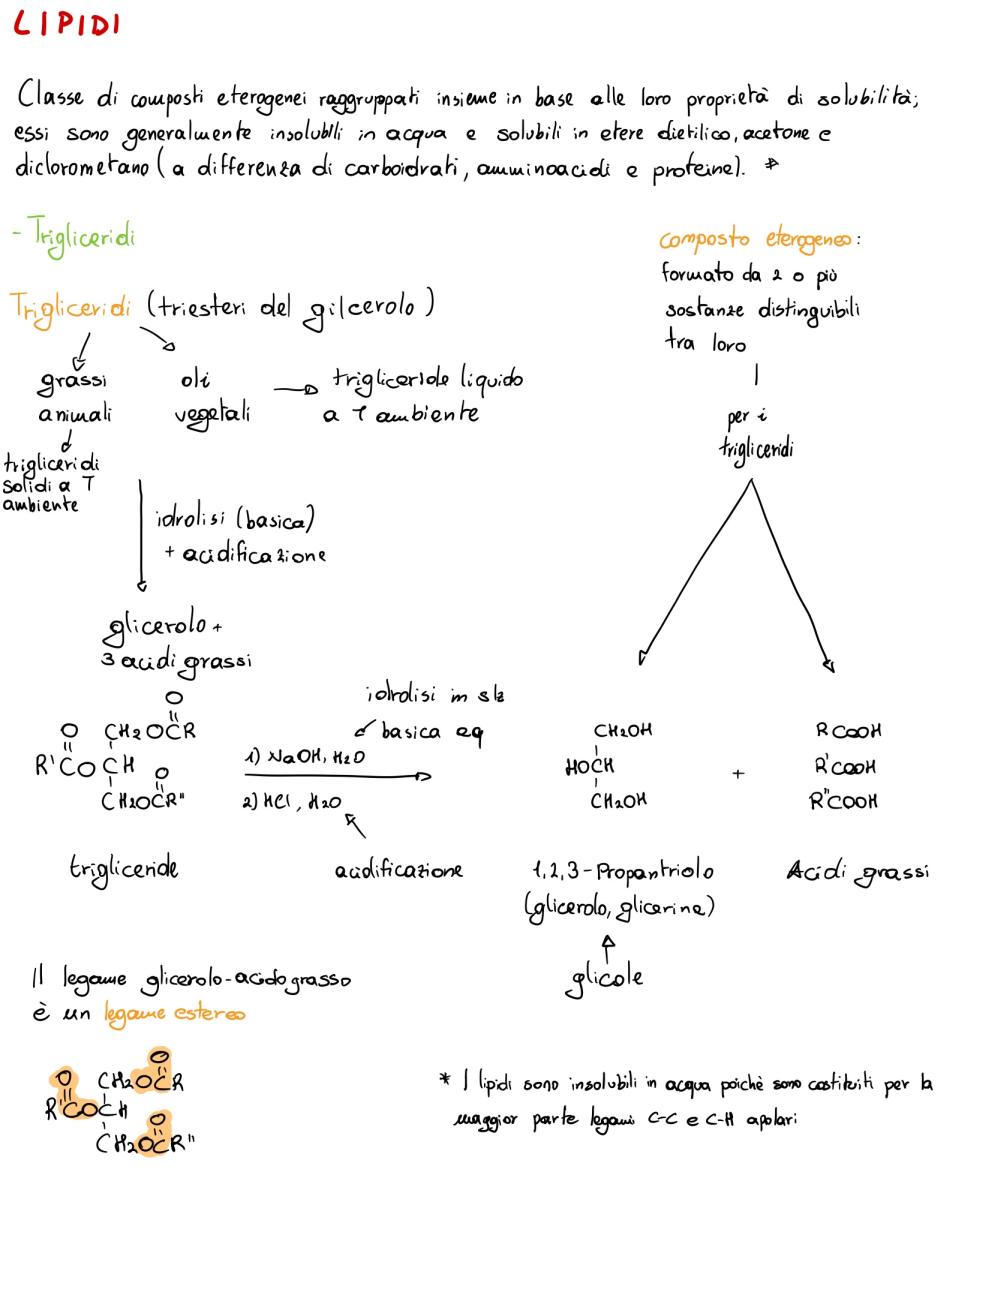 LIPIDI
Classe di composti eterogenei raggruppati insieme in base alle loro proprietà di solubilità;
essi sono generalmente insolubili in acqua e solubili in etere dietilico, acetone e
diclorometano (a differenza di carboidrati, amminoacidi e proteine). *
- Trigliceridi
Trigliceridi (triesteri del gilcerolo)
grassi
animali
oli
vegetali
trigliceride liquido
a T ambiente
trigliceridi
solidi a T
ambiente
idrolisi (basica)
+ acidificazione
glicerolo +
3 acidi grassi
composto eterogeneo:
formato da 2 o più
sostanze distinguibili
tra loro
per i
trigliceridi
O
O CH2OCR
R'COCH O
CH2OCR"
trigliceride
idrolisi in slz
basica aq
1) NaOH, H2O
2) HCl, H2O
acidificazione
CH2OH
HOCH
CH2OH
1,2,3-Propantriolo
(glicerolo, glicerina)
glicole
+
RCOOH
R'COOH
R"COOH
Acidi grassi
Il legame glicerolo-acido grasso
è un legame estereo
O
O CH2OCR
R'COCH O
CH2OCR"
* I lipidi sono insolubili in acqua poichè sono costituiti per la
maggior parte legami C-C e C-H apolari